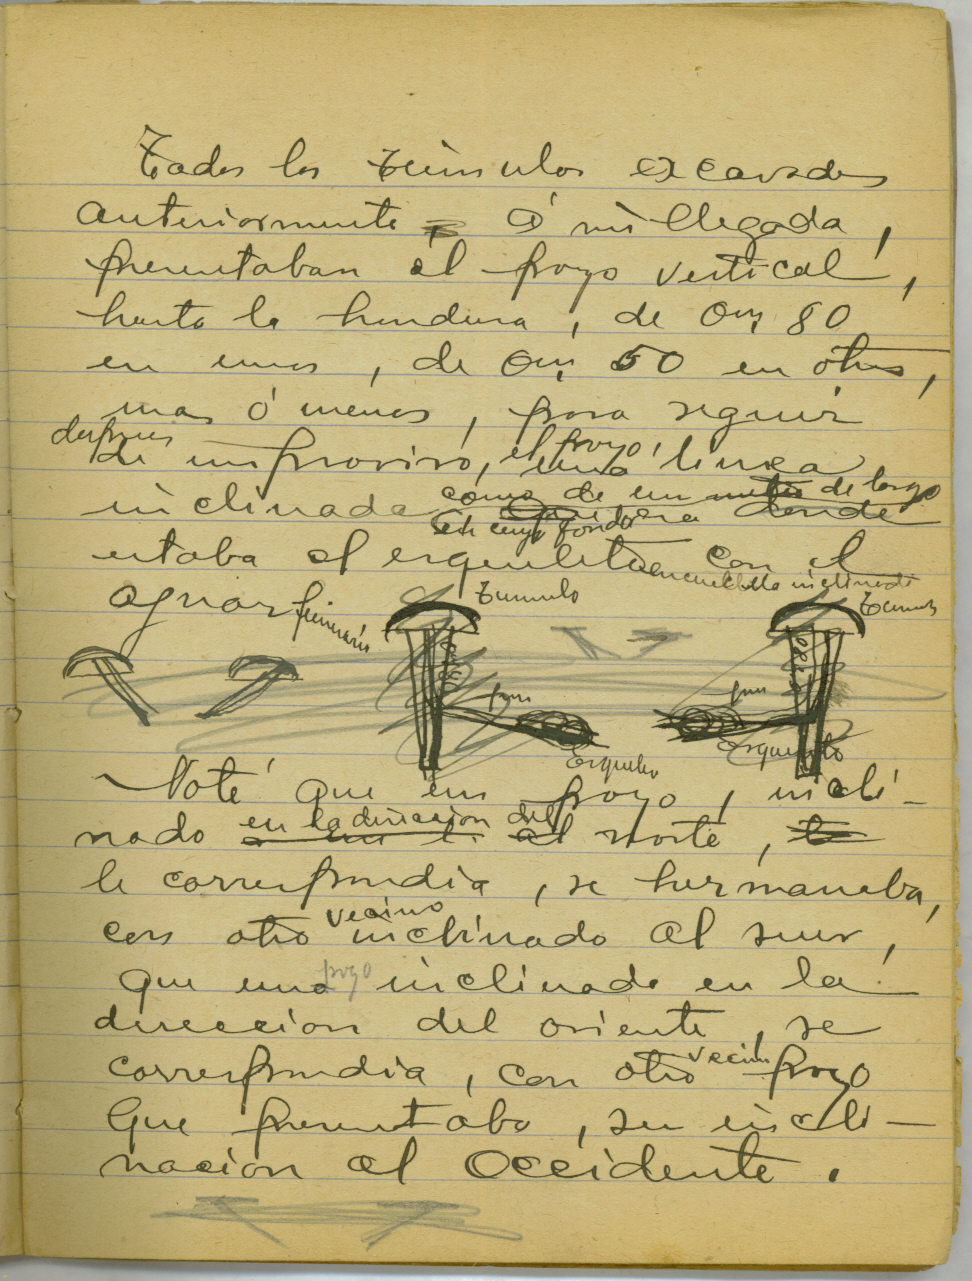 Todos los túmulos excavados
anteriormente á mi llegada,
presentaban el pozo vertical,
hasta la hondura, de 0m, 80
en unos, de 0m, 50 en otros,
mas ó menos, para seguir
despues
de improviso, el pozo, una linea
inclinada como de un metro de largo
en cuyo fondo donde
estaba el esqueleto en cuclilla inclinado con el
ajuar funerario
Tumulo
Tumulo
pozo
Esqueleto
Esqueleto
Noté que un pozo, incli-
nado en la direccion del norte,
le correspondia, se hermanaba,
con otro vecino inclinado al sur,
que uno pozo inclinado en la
direccion del oriente, se
correspondia, con otro vecino pozo
que presentaba, su incli-
nacion al Occidente.